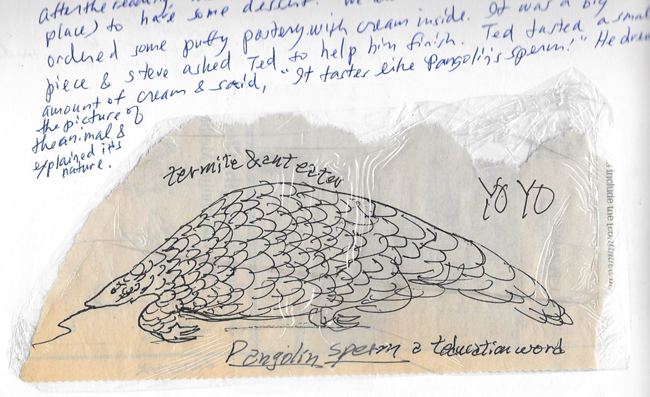 After the reading,
place) to have some dessert. We
ordered some puffy pastery with cream inside. It was a big
piece & Steve asked Ted to help him finish. Ted tasted a small
amount of cream & said, "It tastes like Pangolin's sperm!" He drew
the picture of
the animal &
explained its
nature.
termite & ant eater
YO YO
Pangolin sperm a Teducation word